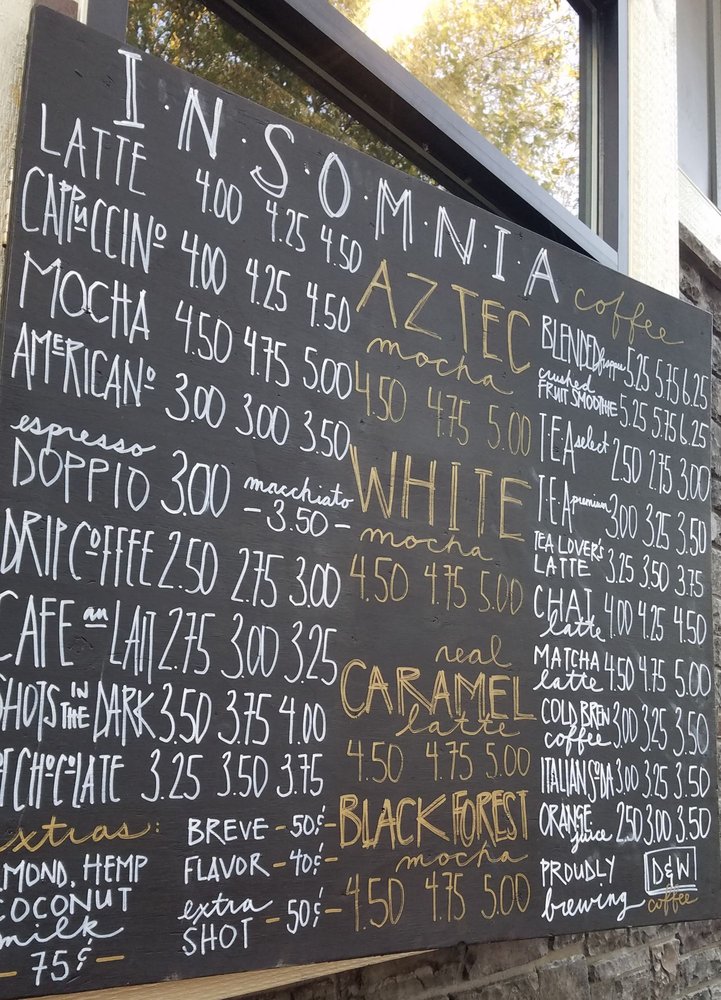 I·N·S·O·M·N·I·A
coffee
LATTE 4.00 4.25 4.50
CAPPUCCINO 4.00 4.25 4.50
MOCHA 4.50 4.75 5.00
AMERICANO 3.00 3.00 3.50
espresso
DOPPIO 3.00
macchiato
-3.50-
DRIP COFFEE 2.50 2.75 3.00
CAFE au LAIT 2.75 3.00 3.25
SHOTS IN THE DARK 3.50 3.75 4.00
CHOCOLATE 3.25 3.50 3.75
extras:
ALMOND, HEMP
COCONUT
milk
- 75¢ -
BREVE - 50¢ -
FLAVOR - 40¢ -
extra
SHOT - 50¢ -
AZTEC
mocha
4.50 4.75 5.00
WHITE
mocha
4.50 4.75 5.00
real
CARAMEL
latte
4.50 4.75 5.00
BLACK FOREST
mocha
4.50 4.75 5.00
BLENDED 5.25 5.75 6.25
crushed
FRUIT SMOOTHIE 5.25 5.75 6.25
TEA select 2.50 2.75 3.00
TEA premium 3.00 3.25 3.50
TEA LOVER'S
LATTE 3.25 3.50 3.75
CHAI
latte 4.00 4.25 4.50
MATCHA
latte 4.50 4.75 5.00
COLD BREW
coffee 3.00 3.25 3.50
ITALIAN SODA 3.00 3.25 3.50
ORANGE
juice 2.50 3.00 3.50
PROUDLY
brewing
D&W
coffee